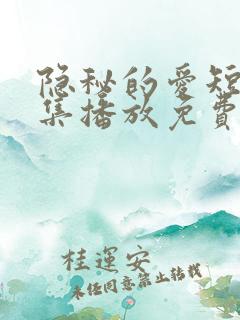 隐秘的爱短
集播放免费
桂運安
未经同意禁止转载